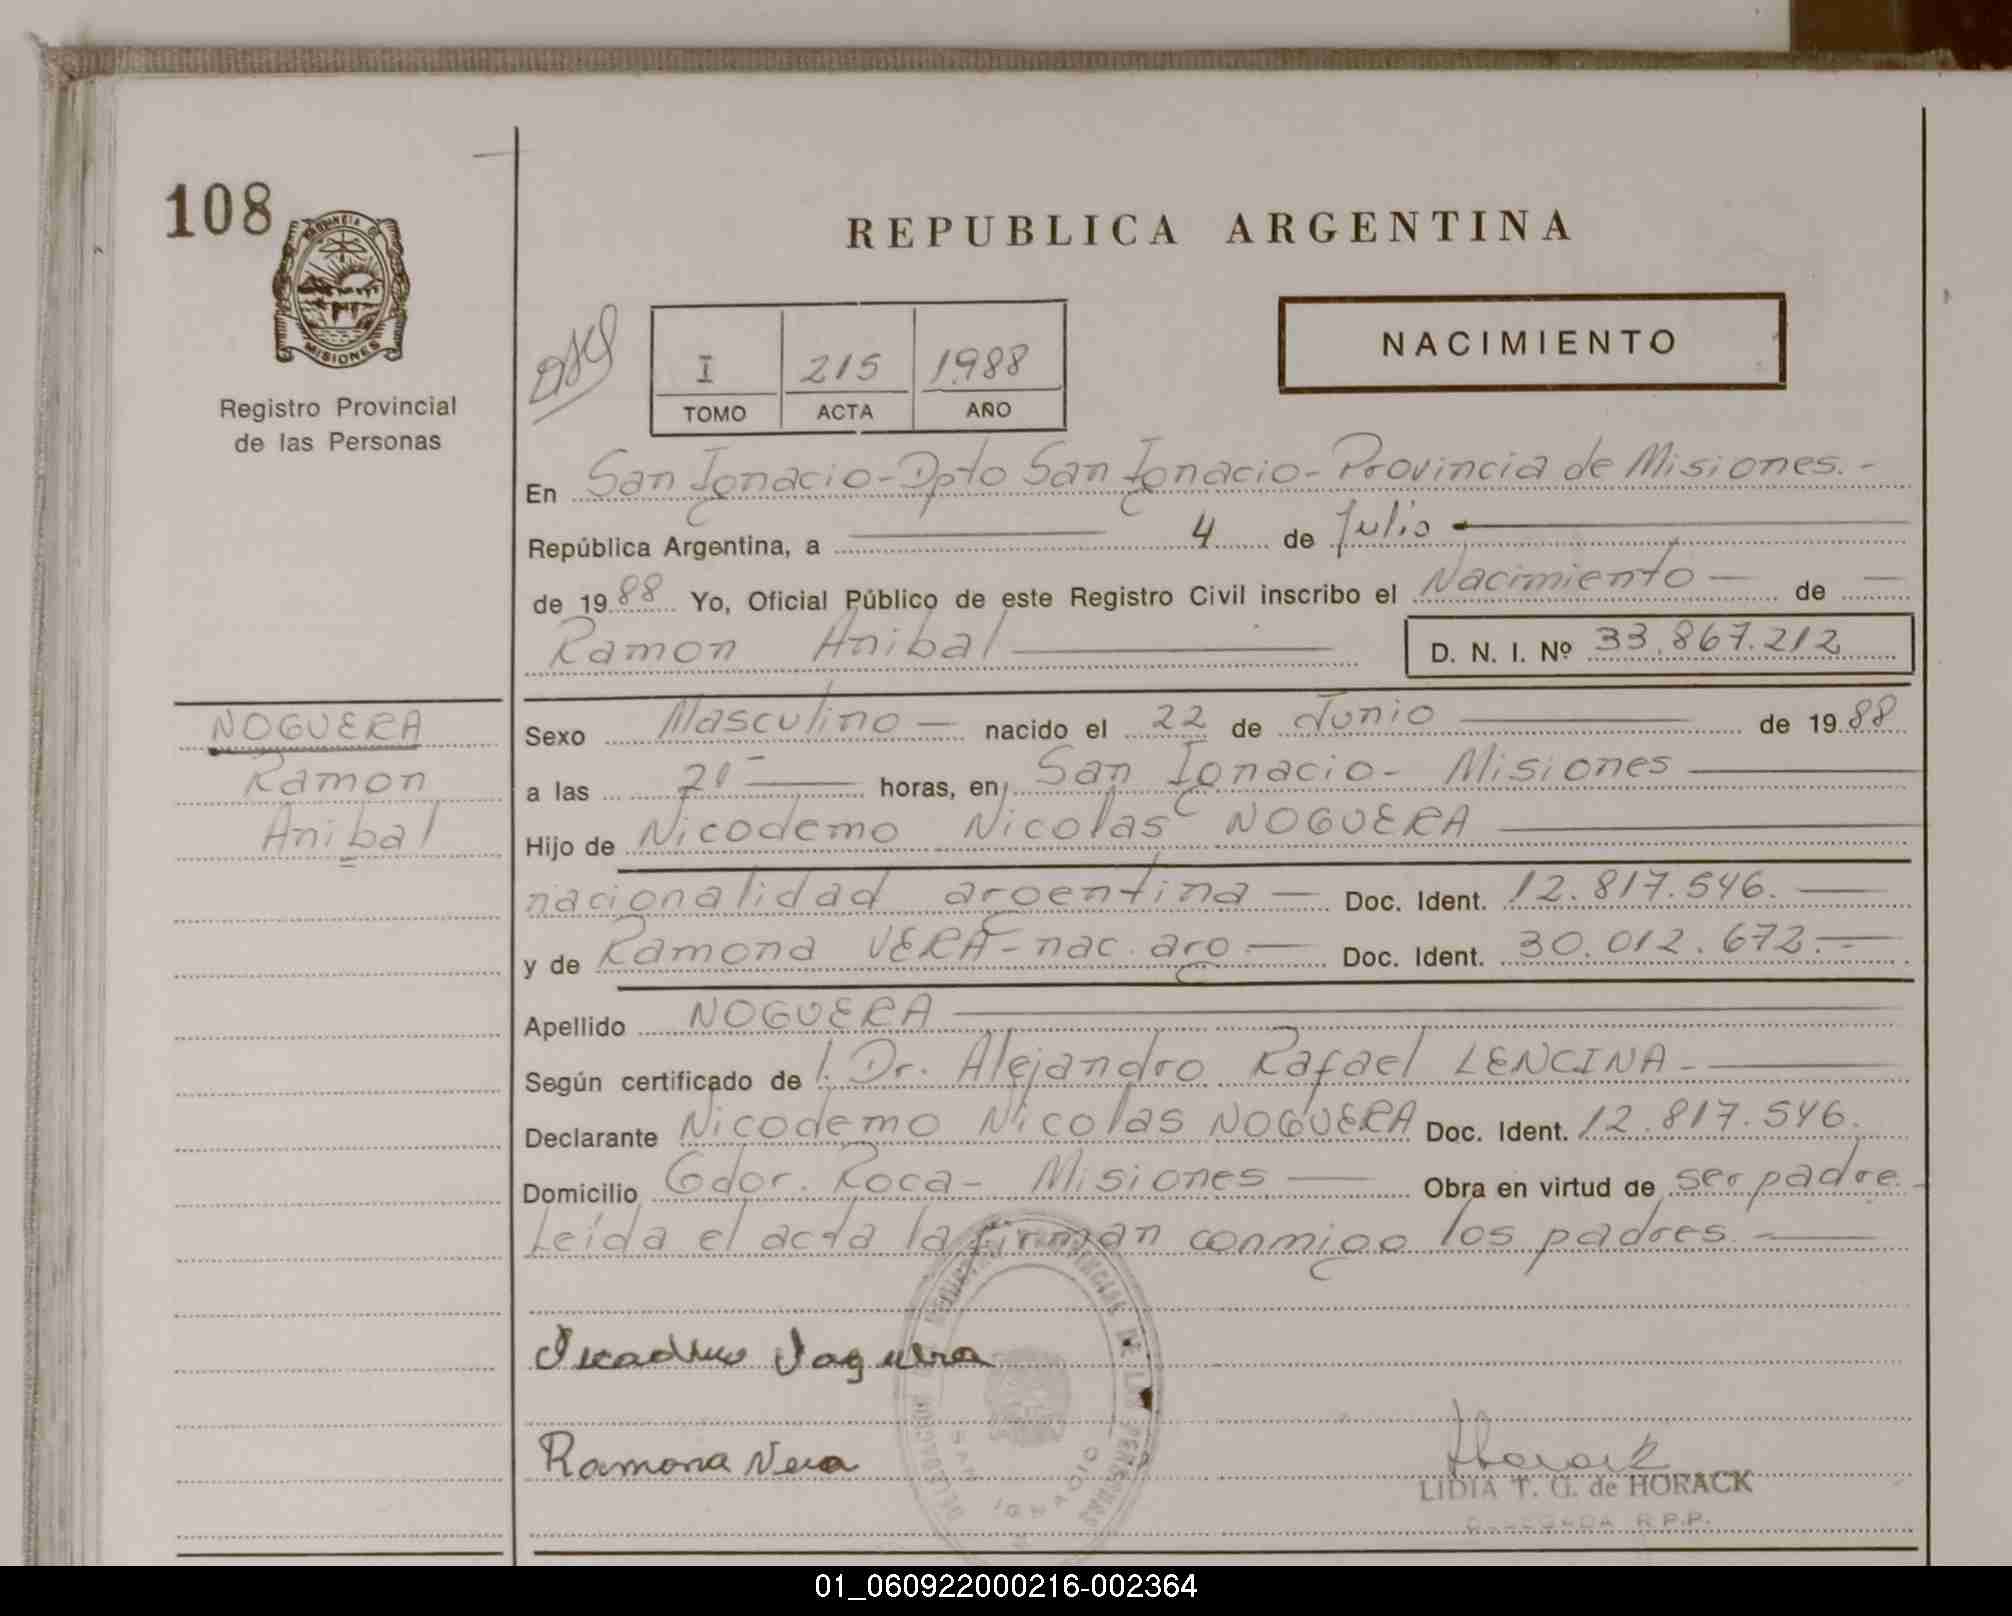 108
PROVINCIA D
MISIONES
Registro Provincial
de las Personas
REPUBLICA ARGENTINA
I 215 1988
TOMO ACTA AÑO
NACIMIENTO
En San Ignacio - Dpto San Ignacio - Provincia de Misiones. -
República Argentina, a 4 de Julio
de 1988 Yo, Oficial Público de este Registro Civil inscribo el Nacimiento — de —
Ramon Anibal
D. N. I. Nº 33.867.212
NOGUERA
Ramon
Anibal
Sexo Masculino — nacido el 22 de Junio de 1988
a las horas, en San Ignacio - Misiones
Hijo de Nicodemo Nicolas NOGUERA
nacionalidad argentina — Doc. Ident. 12.817.546.
y de Ramona VERA - nac. arg. — Doc. Ident. 30.012.672.
Apellido NOGUERA
Según certificado de l. Dr. Alejandro Rafael LENCINA
Declarante Nicodemo Nicolas NOGUERA Doc. Ident. 12.817.546.
Domicilio Gdor. Roca - Misiones — Obra en virtud de ser padre. -
Leída el acta la firman conmigo los padres.
Ramona Vera
Horack
LIDIA T. G. de HORACK
DELEGADA R.P.P.
SAN IGNACIO
01_060922000216-002364